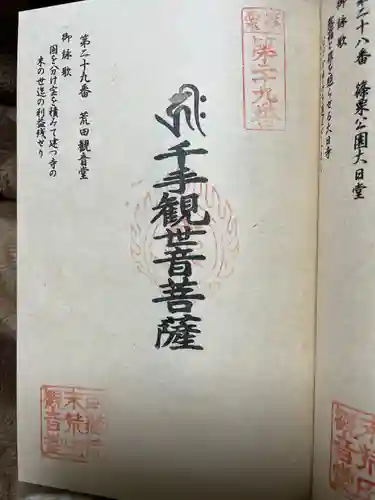 第二十八番 篠栗公園大日堂
御詠歌
第二十九番
千手観世音菩薩
第二十九番 荒田観音堂
御詠歌
国を分け宝を積みて建つ寺の
末の世迄の利益残せり